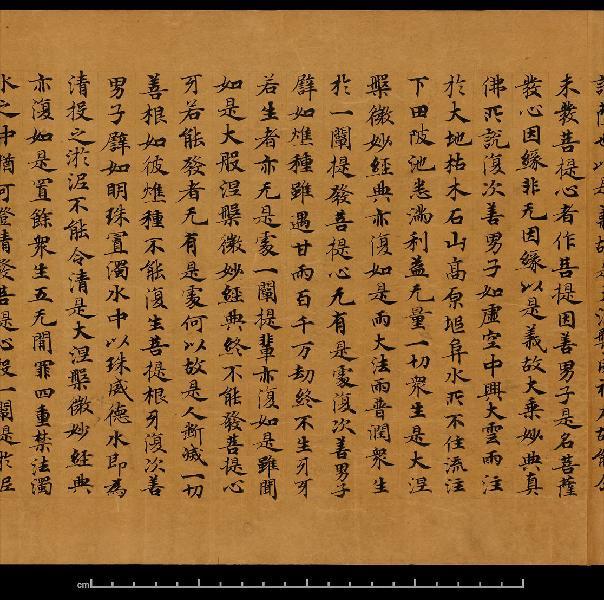 未發菩提心者作菩提因善男子是名菩薩
發心因緣非无因緣以是義故大乘妙典真
佛所說復次善男子如虛空中興大雲雨注
於大地枯木石山高原堆阜水所不住流注
下田陂池悉滿利益无量一切衆生是大涅
槃微妙經典亦復如是雨大法雨普潤衆生
於一闡提發菩提心无有是處復次善男子
譬如燋種雖遇甘雨百千万劫終不生牙牙
若生者亦无是處一闡提輩亦復如是雖聞
如是大般涅槃微妙經典終不能發菩提心
牙若能發者无有是處何以故是人斷滅一切
善根如彼燋種不能復生菩提根牙復次善
男子譬如明珠置濁水中以珠威德水即為
清投之淤泥不能令清是大涅槃微妙經典
亦復如是置餘衆生五无間罪四重禁法濁
水之中猶可澄清發菩提心投一闡提淤泥
cm